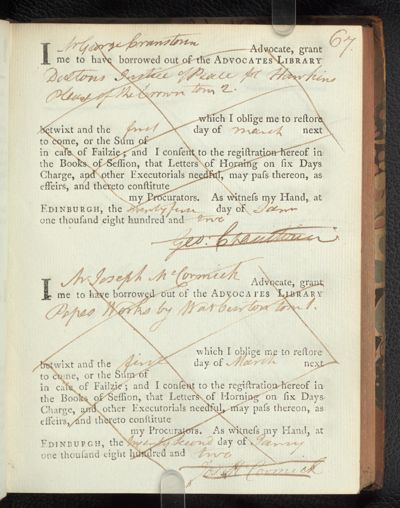 67.
I Mr George Cranstoun Advocate, grant
me to have borrowed out of the ADVOCATES LIBRARY
Justice of Peace fol Hawkins
Pleas of the Crown tom 2.
which I oblige me to reſtore
betwixt and the first day of march next
to come, or the Sum of
in caſe of Failzie; and I conſent to the regiſtration hereof in
the Books of Seſſion, that Letters of Horning on ſix Days
Charge, and other Executorials needful, may paſs thereon, as
effeirs, and thereto conſtitute
my Procurators. As witneſs my Hand, at
EDINBURGH, the day of
one thouſand eight hundred and two
Geo: Cranstoun
I Mr Joseph McCormick Advocate, grant
me to have borrowed out of the ADVOCATES LIBRARY
Popes Works by Warburton tom 1.
which I oblige me to reſtore
betwixt and the first day of March next
to come, or the Sum of
in caſe of Failzie; and I conſent to the regiſtration hereof in
the Books of Seſſion, that Letters of Horning on ſix Days
Charge, and other Executorials needful, may paſs thereon, as
effeirs, and thereto conſtitute
my Procurators. As witneſs my Hand, at
EDINBURGH, the twenty second day of Janry
one thouſand eight hundred and two
Jos. McCormick